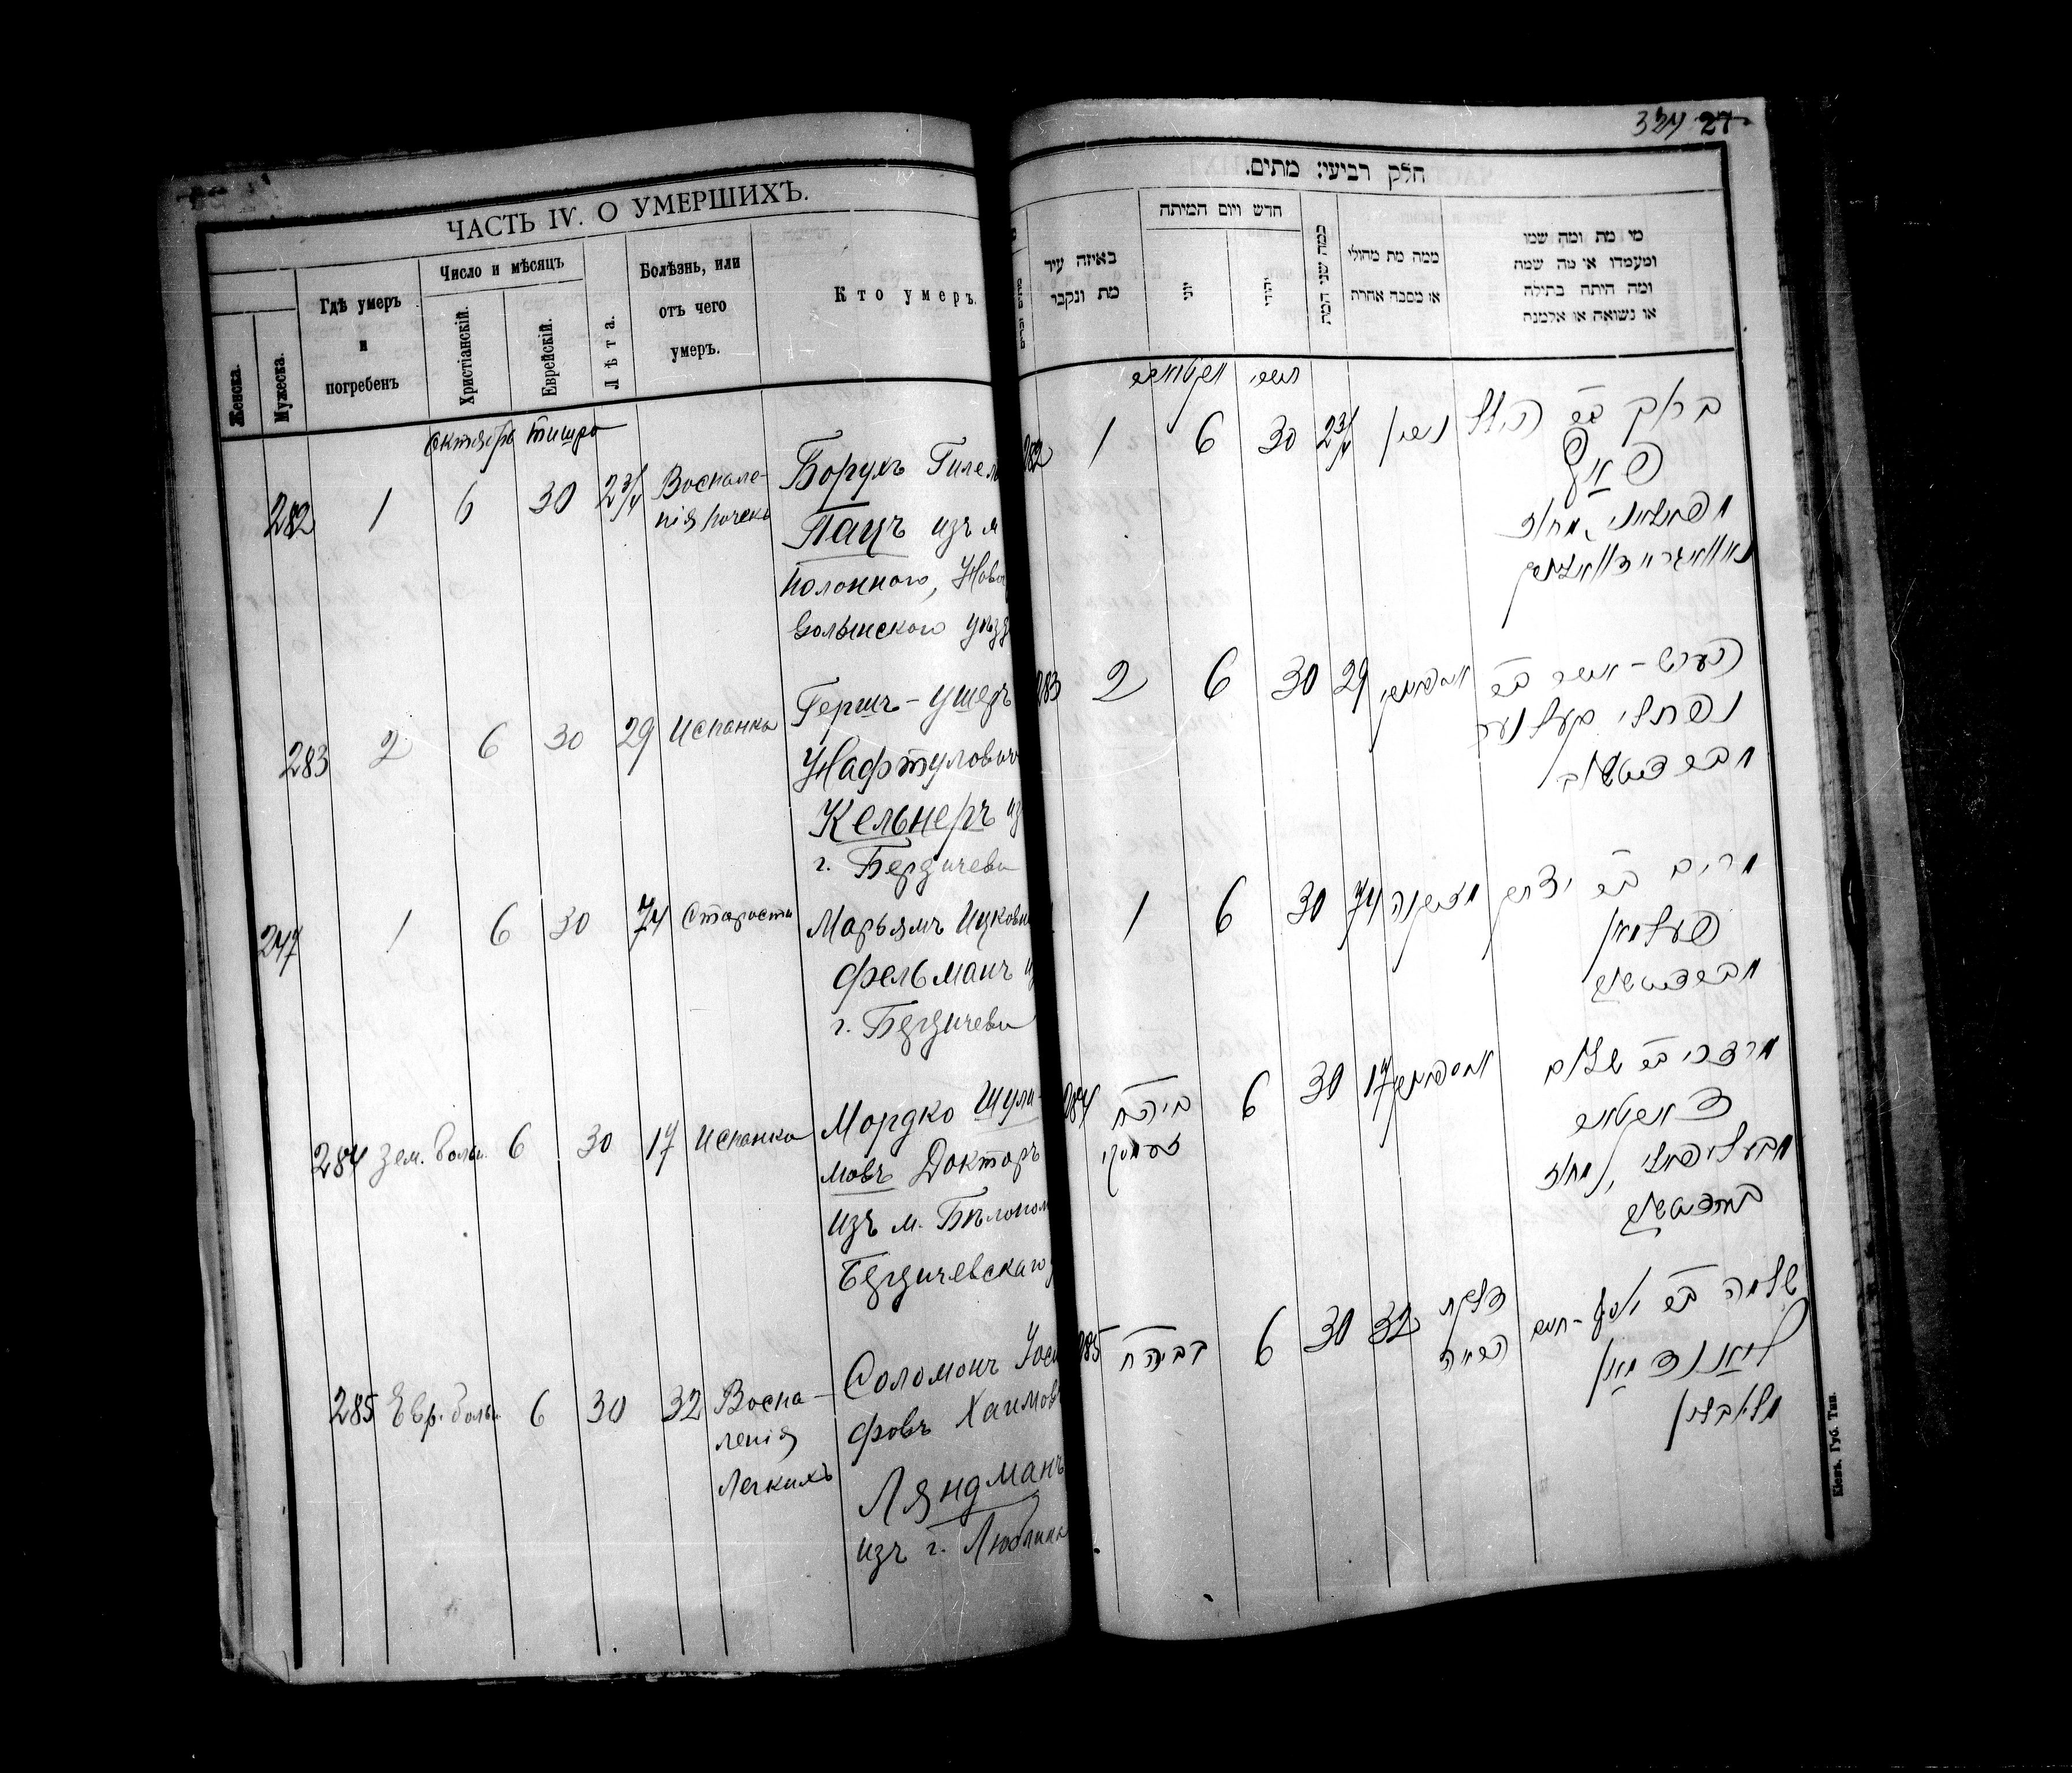 ЧАСТЬ IV. О УМЕРШИХЪ.
Женска.
Мужеска.
Гдѣ умеръ
и
погребенъ
Число и мѣсяцъ
Христіанскій.
Еврейскій.
Лѣта.
Болѣзнь, или
отъ чего
умеръ.
Кто умеръ.
октябрь тишри
282 1 6 30 2 3/4 Воспале-
нія почекъ
Борухъ Гилел
Пацъ изъ м
Полонного, Ново
Волынского уѣзд
283 2 6 30 29 Испанка
Гершъ-Ушеръ
Нафтулович
Кельнеръ из
г. Бердичева
247 1 6 30 74 Старости
Марьямъ Ицкови
Фельманъ и
г. Бердичева
284 Зем. больн. 6 30 17 Испанка
Мордко Шули-
мовъ Докторъ
изъ м. Бѣлопол
Бердичевскаго
285 Евр. больн. 6 30 32 Воспа-
ленія
легкихъ
Соломонъ Іоси
фовъ Хаимов
Ляндманъ
изъ г. Люблина
324 27
חלק רביעי: מתים.
באיזה עיר
מת ונקבר
חדש ויום המיתה
יוני
יהודי
כמה שני המת
ממה מת מחולי
או מסבה אחרת
מי מת ומה שמו
ומעמדו או מה שמת
ומה היתה בתולה
או נשואה או אלמנה
אקטאבר תשרי
282 1 6 30 2 3/4
283 2 6 30 29
נפתלי קעלנער
1 6 30 74 מזקנה מרים בת יצחק
פעלמאן
284 6 30 17 מרדכי בר שלום
דאקטאר
285 6 30 32 דלקת
הריאה
לאנדמאן
מלובלין
Кіевъ. Губ. Тип.